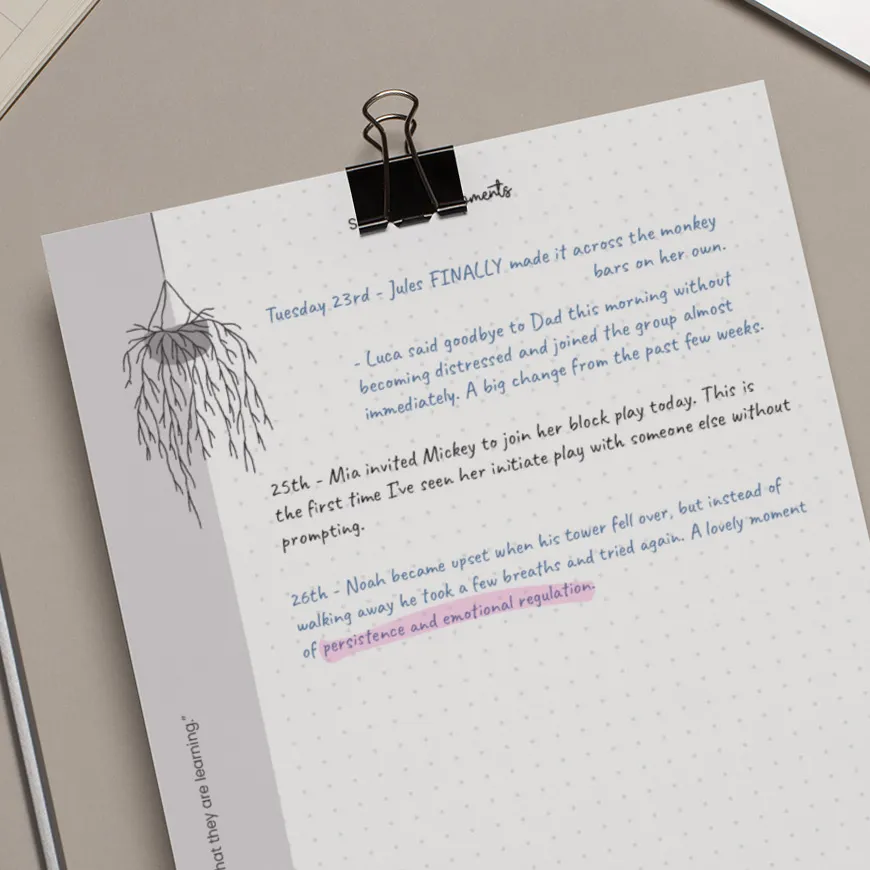 Tuesday 23rd - Jules FINALLY made it across the monkey
bars on her own.
- Luca said goodbye to Dad this morning without
becoming distressed and joined the group almost
immediately. A big change from the past few weeks.
25th - Mia invited Mickey to join her block play today. This is
the first time I've seen her initiate play with someone else without
prompting.
26th - Noah became upset when his tower fell over, but instead of
walking away he took a few breaths and tried again. A lovely moment
of persistence and emotional regulation.
they are learning."